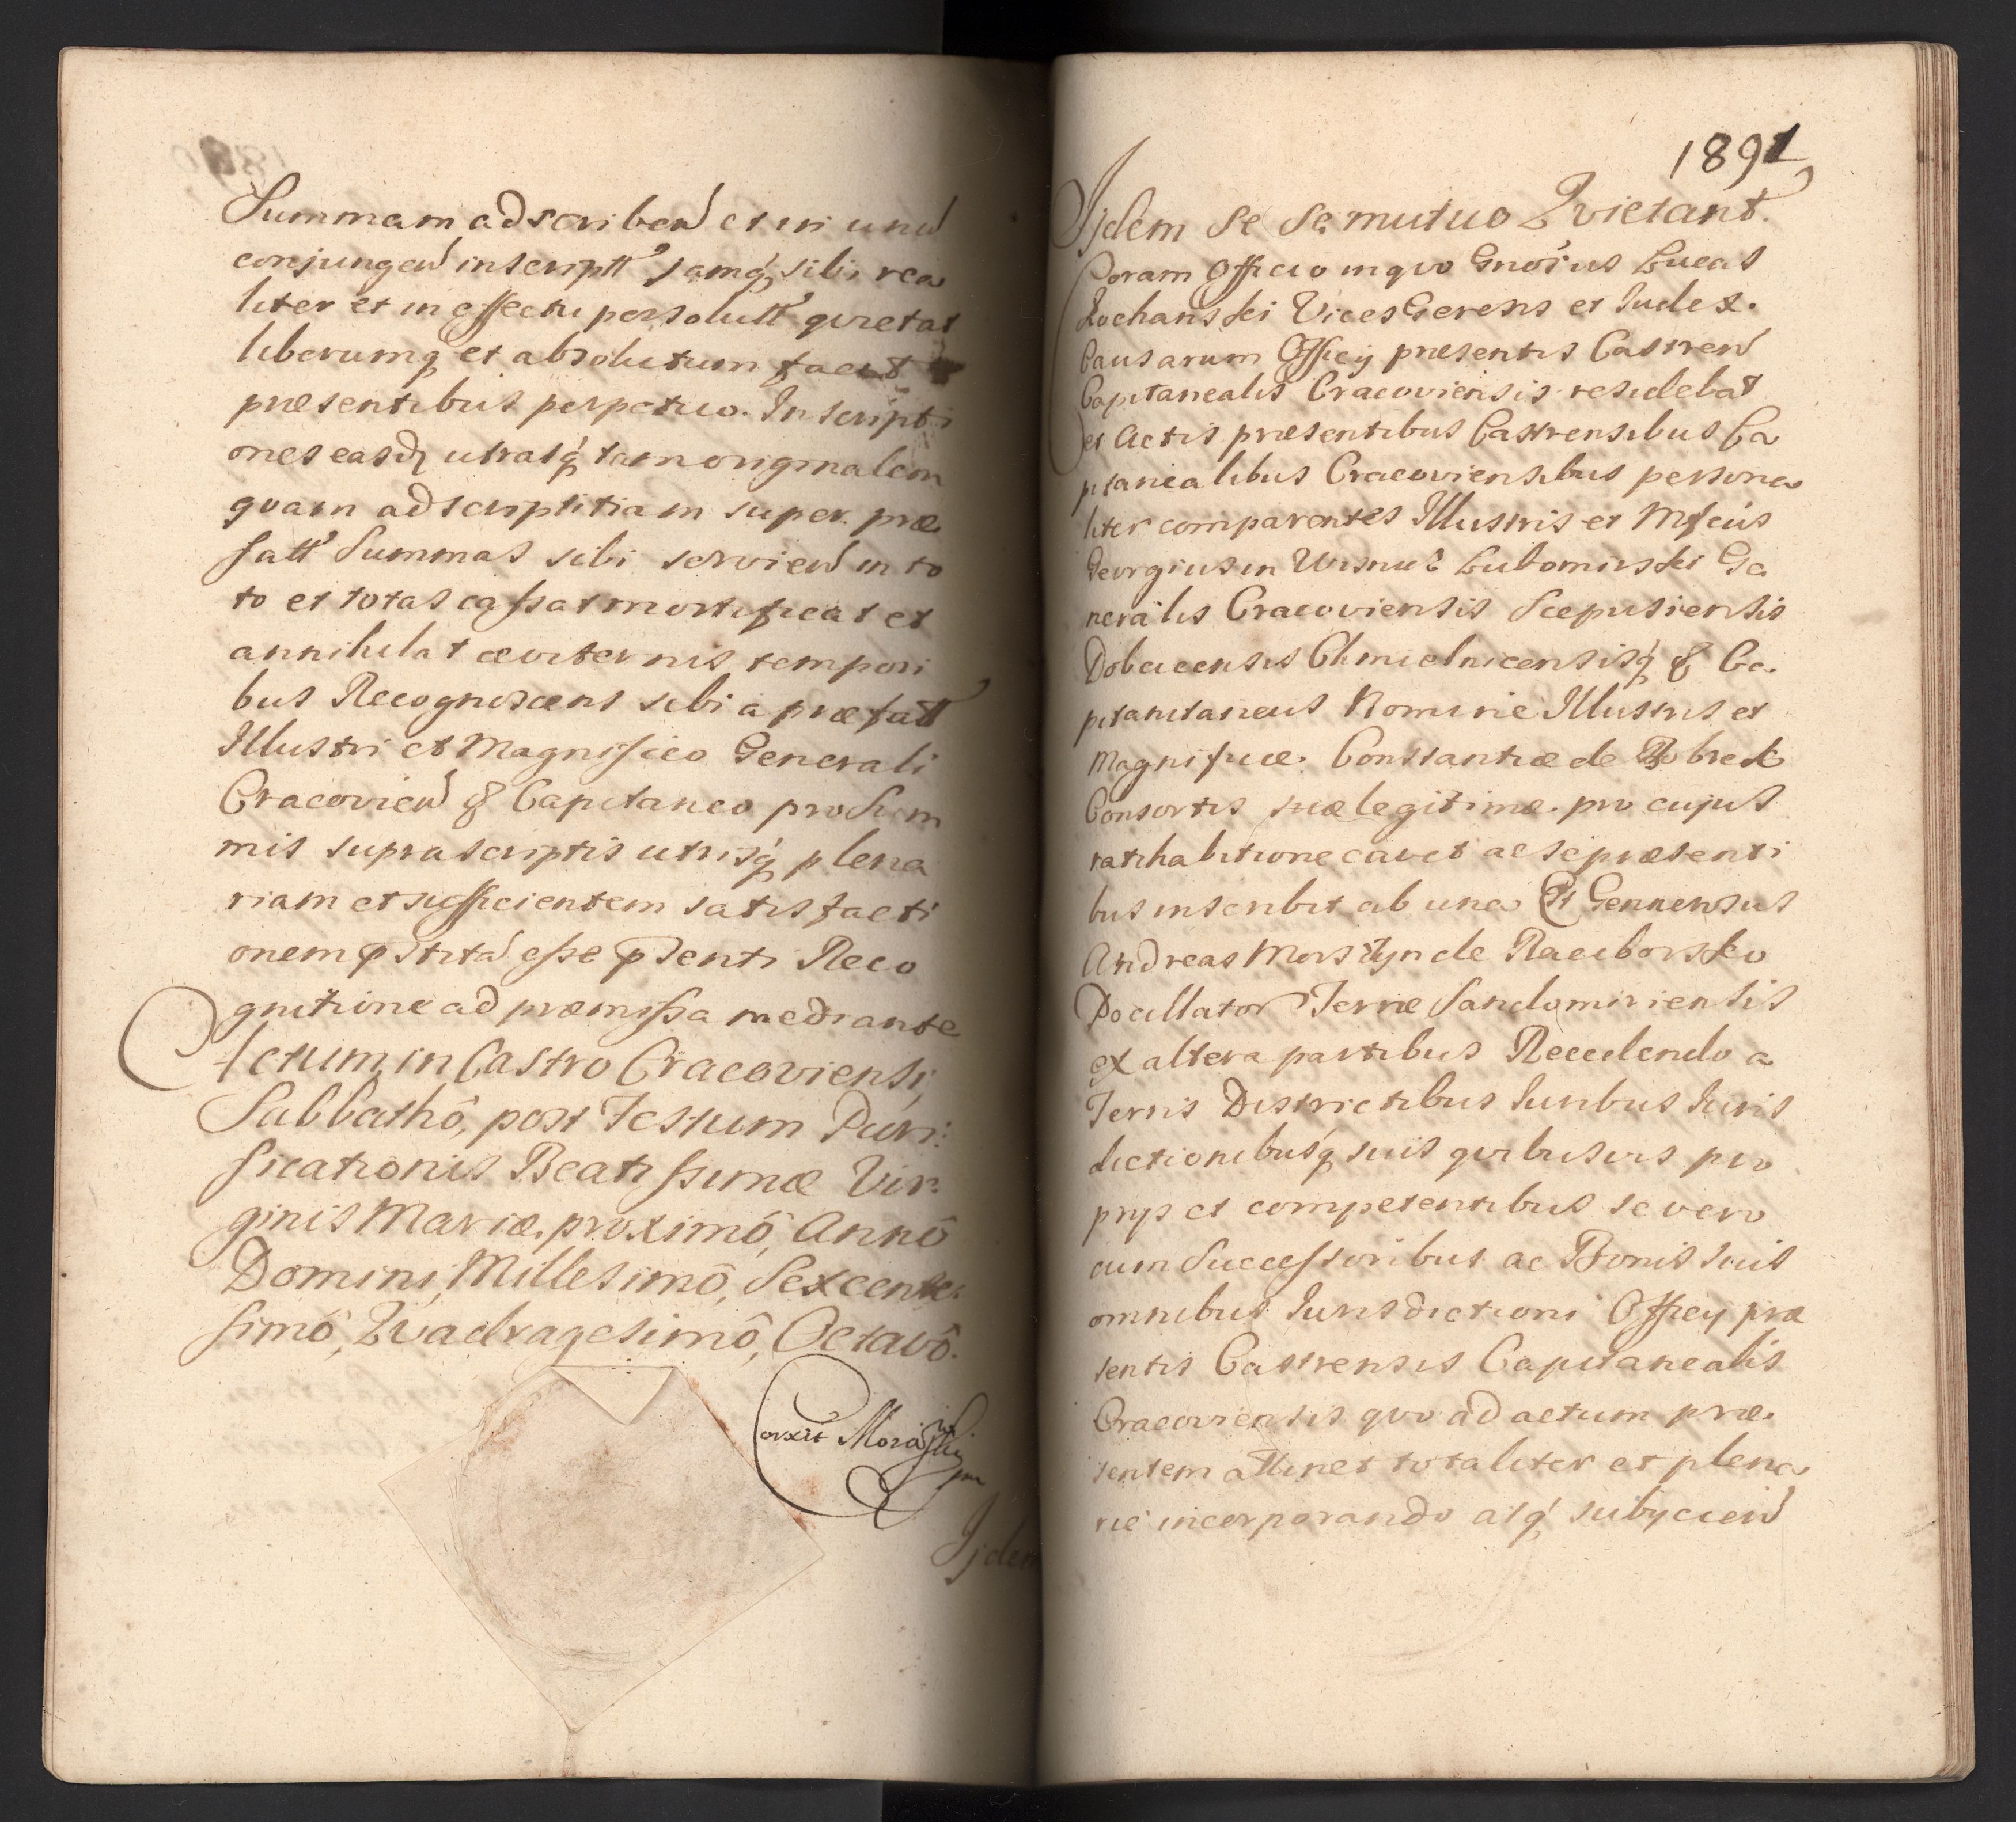 Summam adscriben et in unu
conjungen inscriptt jamq sibi rea
liter et in effectu persolutt quietat
liberumq et absolutum facit
præsentibus perpetuo. Inscripti
ones easdq utrasq tam originalem
quam adscriptitiam super præ
fatt Summas sibi servien in to
to et totas cassat mortificat et
annihilat æviternis tempori
bus Recognoscens sibi a præfatt
Illustri et Magnifico Generali
Cracovien & Capitaneo pro Sum
mis suprascriptis utrisq plena
riam et sufficientem satisfacti
onem pstitã esse psenti Reco
gnitione ad præmissa mediante
Actum in Castro Cracoviensi,
Sabbathô, post Festum Puri:
ficationis Beatissimæ Vir:
ginis Mariæ, proximô, Annô
Domini, Millesimô, Sexcente:
simô, Qvadragesimô, Octavô.
Corxit
Ijdem
1891
Ijdem Se Se mutuo Qvietant.
Coram Officio in qvo Gnosus Lucas
Kochanski Vices Gerens et Iudex.
Causarum Officij præsentis Castren
Capitanealis Cracoviensis residebat
et Actis præsentibus Castrensibus Ca
pitanealibus Cracoviensibus persona
liter comparentes Illustris et Mfcus
Georgius in Wisnic Lubomirski Ge
neralis Cracoviensis Scepusiensis
Dobcicensis Chmielnicensisq & Ca.
pitanitaneus Nomine Illustris et
Magnificæ Constantiæ de Bobrek
Consortis suæ legitimæ. pro cujus
ratihabitione cavet ac se præsenti
bus inscribit ab una Et Generosus
Andreas Morstyn de Raciborsko
Pocillator Terræ Sandomiriensis
ex altera partibus Recedendo a
Terris Districtibus Iuribus Iuris
dictionibusq suis qvibusvis pro
prijs et competentibus se vero
cum Successoribus ac Bonis suis
omnibus Iurisdictioni Officij præ
sentis Castrensis Capitanealis
Cracoviensis qvo ad actum præ.
sentem attinet totaliter et plena
rie incorporando atq subijcien